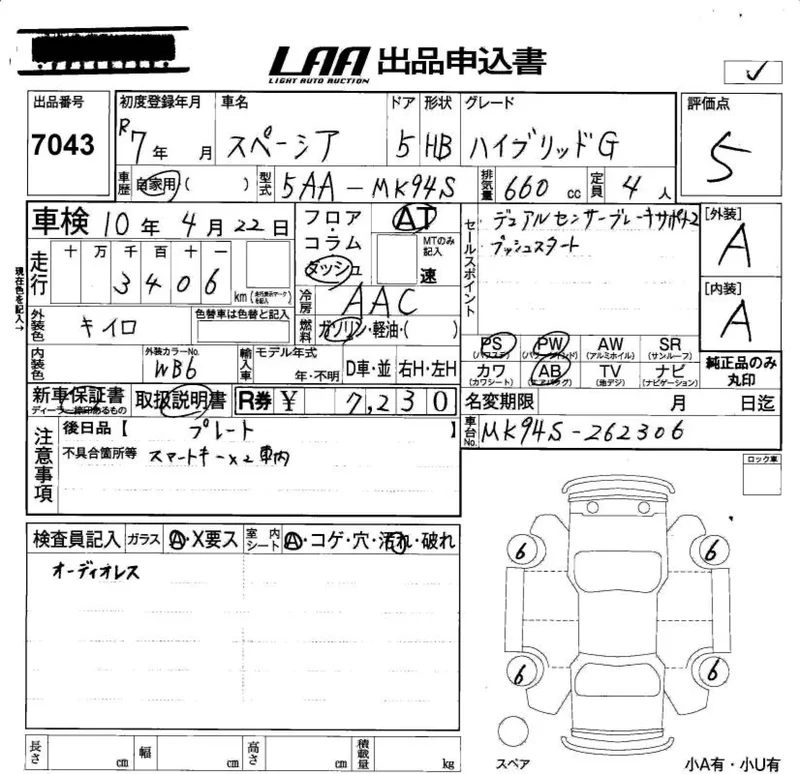 LAA 出品申込書
LIGHT AUTO AUCTION
出品番号
7043
初度登録年月
R7年 月
車名
スペーシア
ドア
5
形状
HB
グレード
ハイブリッドG
評価点
5
車歴
自家用( )
型式
5AA-MK94S
排気量
660 cc
定員
4 人
車検 10年 4月 22日
現在色を記入→
走行
十 万 千 百 十 一
3 4 0 6
km
外装色
キイロ
色替車は色替と記入
内装色
外装カラーNo.
WB6
輸入車
モデル年式
年・不明
D車・並
右H・左H
フロア・コラム
ダッシュ
AT
MTのみ記入
速
冷房
AAC
燃料
ガソリン・軽油・( )
セールスポイント
デュアルセンサーブレーキサポートⅡ
プッシュスタート
[外装]
A
[内装]
A
PS
(パワステ)
PW
(パワーウインド)
AW
(アルミホイル)
SR
(サンルーフ)
カワ
(カワシート)
AB
(エアバッグ)
TV
(地デジ)
ナビ
(ナビゲーション)
純正品のみ
丸印
新車保証書
取扱説明書
R券 ¥ 7,230
名変期限 月 日迄
車台No.
MK94S-262306
注意事項
後日品【 プレート 】
不具合箇所等 スマートキー×2車内
ロック車
検査員記入
ガラス
A・X要ス
室内シート
A・コゲ・穴・汚れ・破れ
オーディオレス
6
6
6
6
スペア
長さ cm
幅 cm
高さ cm
積載量 kg
小A有・小U有